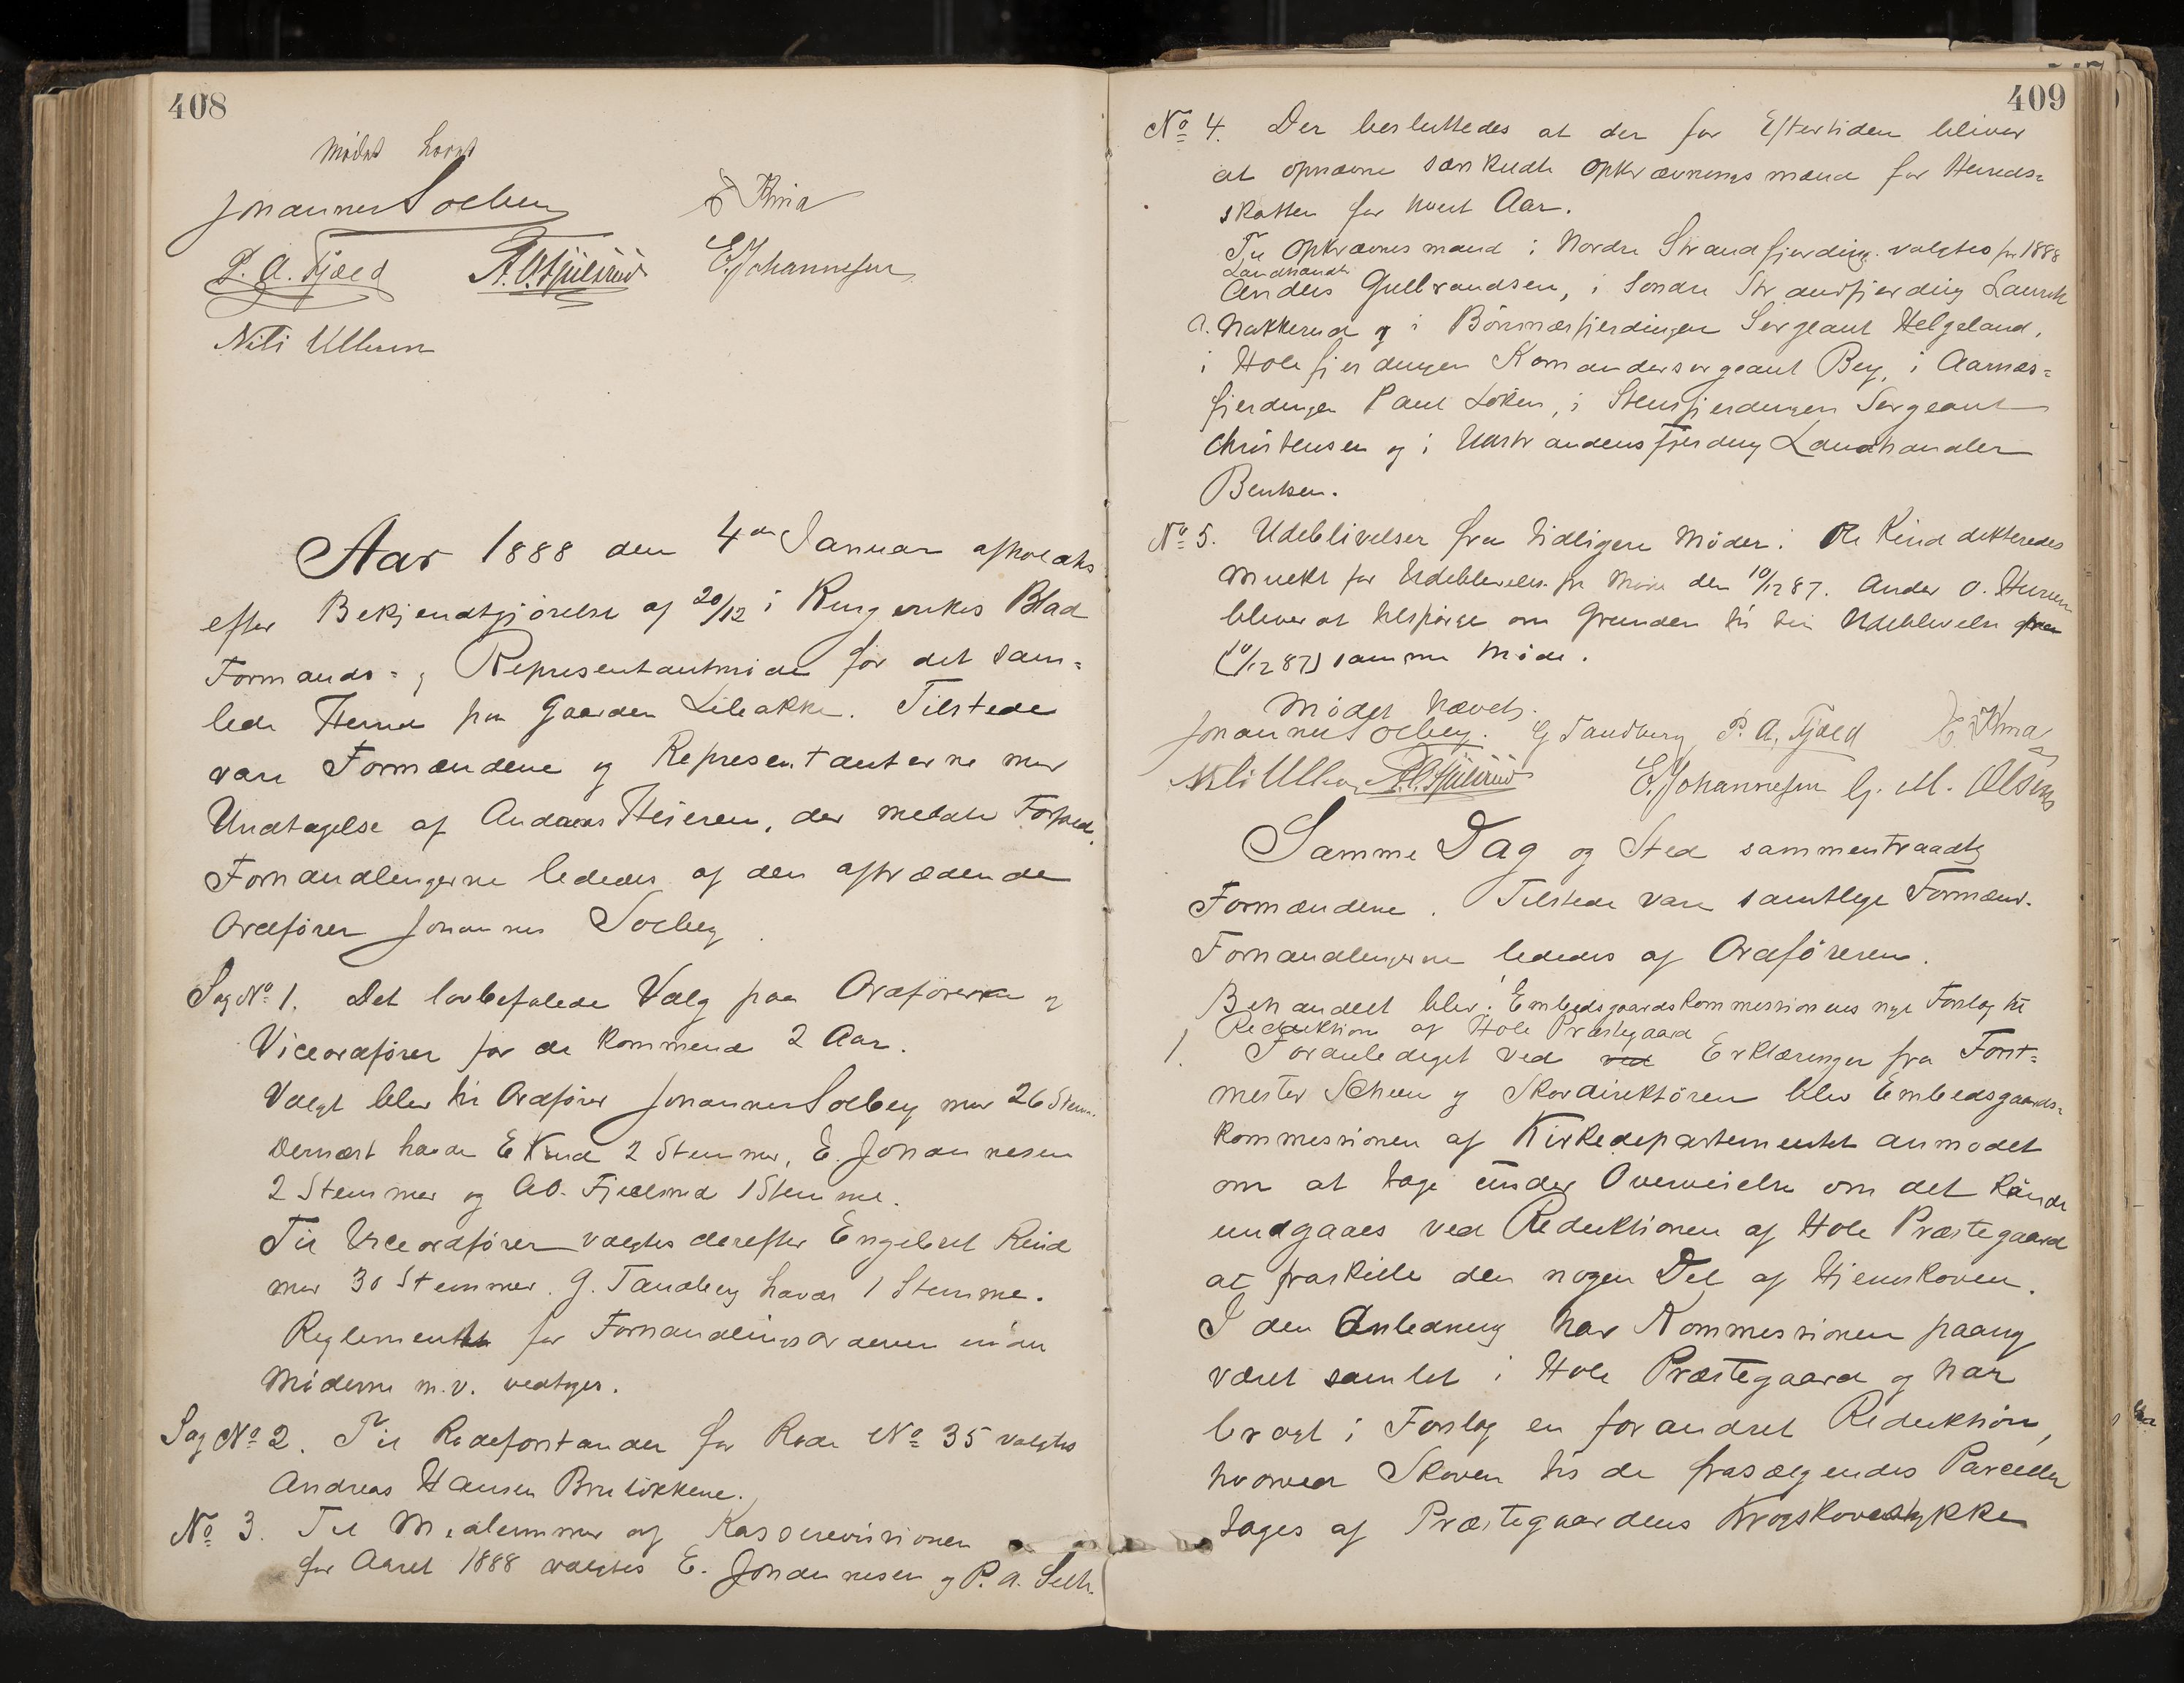 408
Mødet hævet
Johannes Solberg E Kind
P. A. Fjæld A. O. Fjeldstad E. Johannesen
Nils Ullern
Aar 1888 den 4de Januar afholdtes
efter Bekjendtgjørelse af 20/12 i Ringerikes Blad
Formands- og Representantmøde for det sam-
lede Herred paa Gaarden Libakke. Tilstede
vare Formændene og Representanterne med
Undtagelse af Andreas Heieren, der meldte Forfald.
Forhandlingerne lededes af den aftrædende
Ordfører Johannes Solberg
Sag No 1. Det lovbefalede Valg paa Ordfører og
Viceordfører for de kommende 2 Aar.
Valgt blev til Ordfører Johannes Solberg med 26 Stem.
Dernæst havde E Kind 2 Stemmer, E. Johannesen
2 Stemmer og AO. Fjeldstad 1 Stemme.
Til Viceordfører valgtes derefter Engebret Kind
med 30 Stemmer. G. Tandberg havde 1 Stemme.
Reglementet for Forhandlingsordenen under
Møderne m.v. vedtages.
Sag No 2. Til Rodeforstander for Rode No 35 valgtes
Andreas Hansen Bruløkkene.
No 3. Til Medlemmer af Kasserevisionen
for Aaret 1888 valgtes E. Johannesen og P. A.
409
No 4. Der besluttedes at der for Eftertiden bliver
at opnævne særskildte Opkrævningsmænd for Herreds-
skatten for hvert Aar.
Til Opkrævnesmænd i Nordre Strandfjerding valgtes for 1888
Landhandl.
Anders Gulbrandsen, i Søndre Strandfjerding Laurits
A. Nakkerud og i Bønsnæsfjerdingen Sergeant Helgeland,
i Holefjerdingen Komandersergeant Bey, i Aarnæs-
fjerdingen Paul Løken, i Stensfjerdingen Sergeant
Christensen og i Utstrandens Fjerding Landhandler
Bentsen.
No 5. Udeblivelser fra tidligere Møder. Ole Kind dikteredes
Mulkt for Udeblivelse fra Møde den 10/12 87. Anders O. Hurum
bliver at tilspørge om Grunden til sin Udeblivelse fra
(10/12 87) samme Møde.
Mødet hævet.
Johannes Solberg. G Tandberg P. A. Fjæld E Kind
Nils Ullern A. O. Fjeldstad E. Johannesen G. M. Olsen
Samme Dag og Sted sammentraadte
Formændene. Tilstede vare samtlige Formænd.
Forhandlingerne lededes af Ordføreren.
Behandlet blev: Embedsgaardskommissionens nye Forslag til
Reduktion af Hole Præstegaard
1. Foranlediget ved ved Erklæringer fra Forst-
mester Scheen og Skovdirektøren blev Embedsgaards-
kommissionen af Kirkedepartementet anmodet
om at tage under Overveielse om det kunde
undgaaes ved Reduktionen af Hole Præstegaard
at fraskille den nogen Del af Hjemskoven.
I den Anledning har Kommissionen paany
været samlet i Hole Præstegaard og har
bragt i Forslag en forandret Reduktion,
hvorved Skoven til de frasælgendes Parceller
tages af Præstegaardens Krogskovstykke